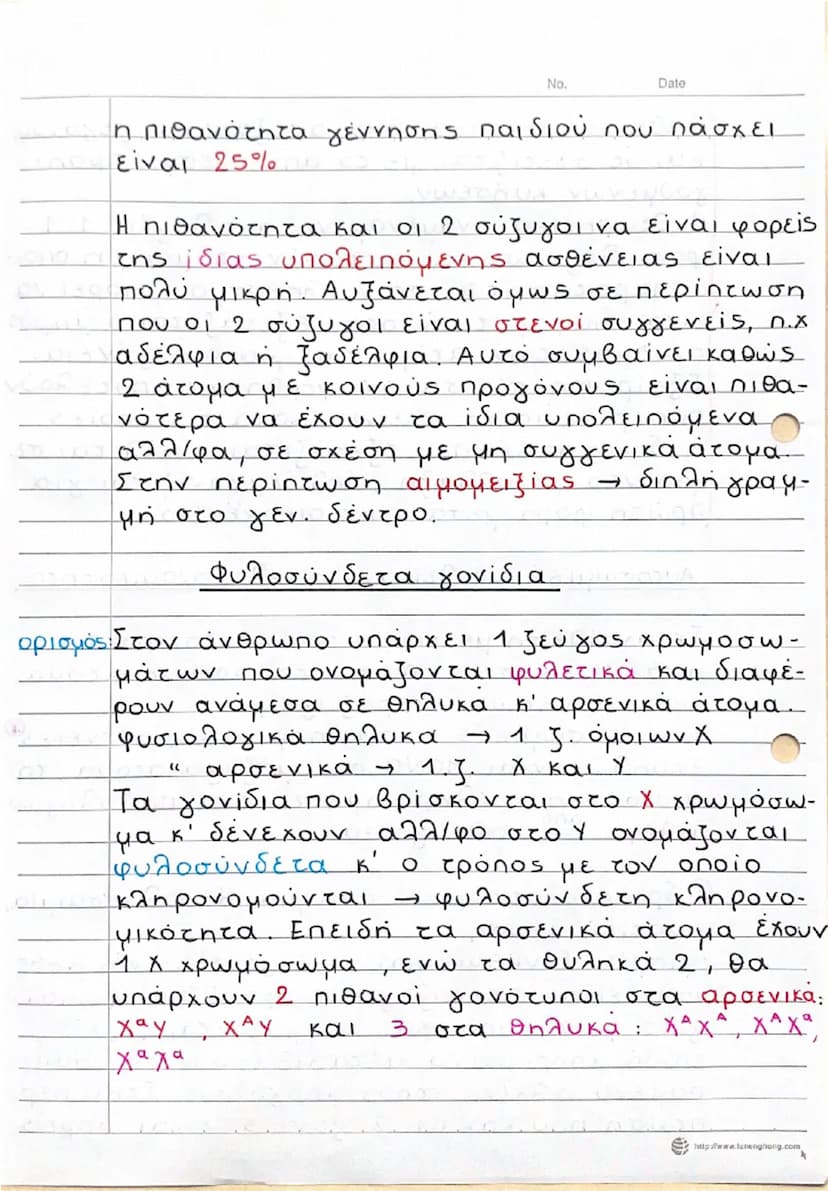 No. Date
η πιθανότητα γέννησης παιδιού που πάσχει
είναι 25%
Η πιθανότητα και οι 2 σύζυγοι να είναι φορείς
της ίδιας υπολειπόμενης ασθένειας είναι
πολύ μικρή. Αυξάνεται όμως σε περίπτωση
που οι 2 σύζυγοι είναι στενοί συγγενείς, π.χ
αδέλφια ή ξαδέλφια. Αυτό συμβαίνει καθώς
2 άτομα με κοινούς προγόνους είναι πιθα-
νότερα να έχουν τα ίδια υπολειπόμενα
αλλ/φα, σε σχέση με μη συγγενικά άτομα.
Στην περίπτωση αιμομειξίας → διπλή γραμ-
μή στο γεν. δέντρο.
Φυλοσύνδετα γονίδια
ορισμός: Στον άνθρωπο υπάρχει 1 ζεύγος χρωμοσω-
μάτων που ονομάζονται φυλετικά και διαφέ-
ρουν ανάμεσα σε θηλυκά κ' αρσενικά άτομα.
φυσιολογικά θηλυκα → 1 ζ. όμοιων Χ
" αρσενικά → 1.ζ. Χ και Υ
Τα γονίδια που βρίσκονται στο Χ χρωμόσω-
μα κ' δεν έχουν αλλ/φο στο Υ ονομάζονται
φυλοσύνδετα κ' ο τρόπος με τον οποίο
κληρονομούνται → φυλοσύνδετη κληρονο-
μικότητα. Επειδή τα αρσενικά άτομα έχουν
1 Χ χρωμόσωμα, ενώ τα θυληκά 2, θα
υπάρχουν 2 πιθανοί γονότυποι στα αρσενικά:
Χᵃ Υ, Χᴬ Υ και 3 στα θηλυκά: Χᴬ Χᴬ, Χᴬ Χᵃ,
Χᵃ Χᵃ
http://www.lunenghong.com